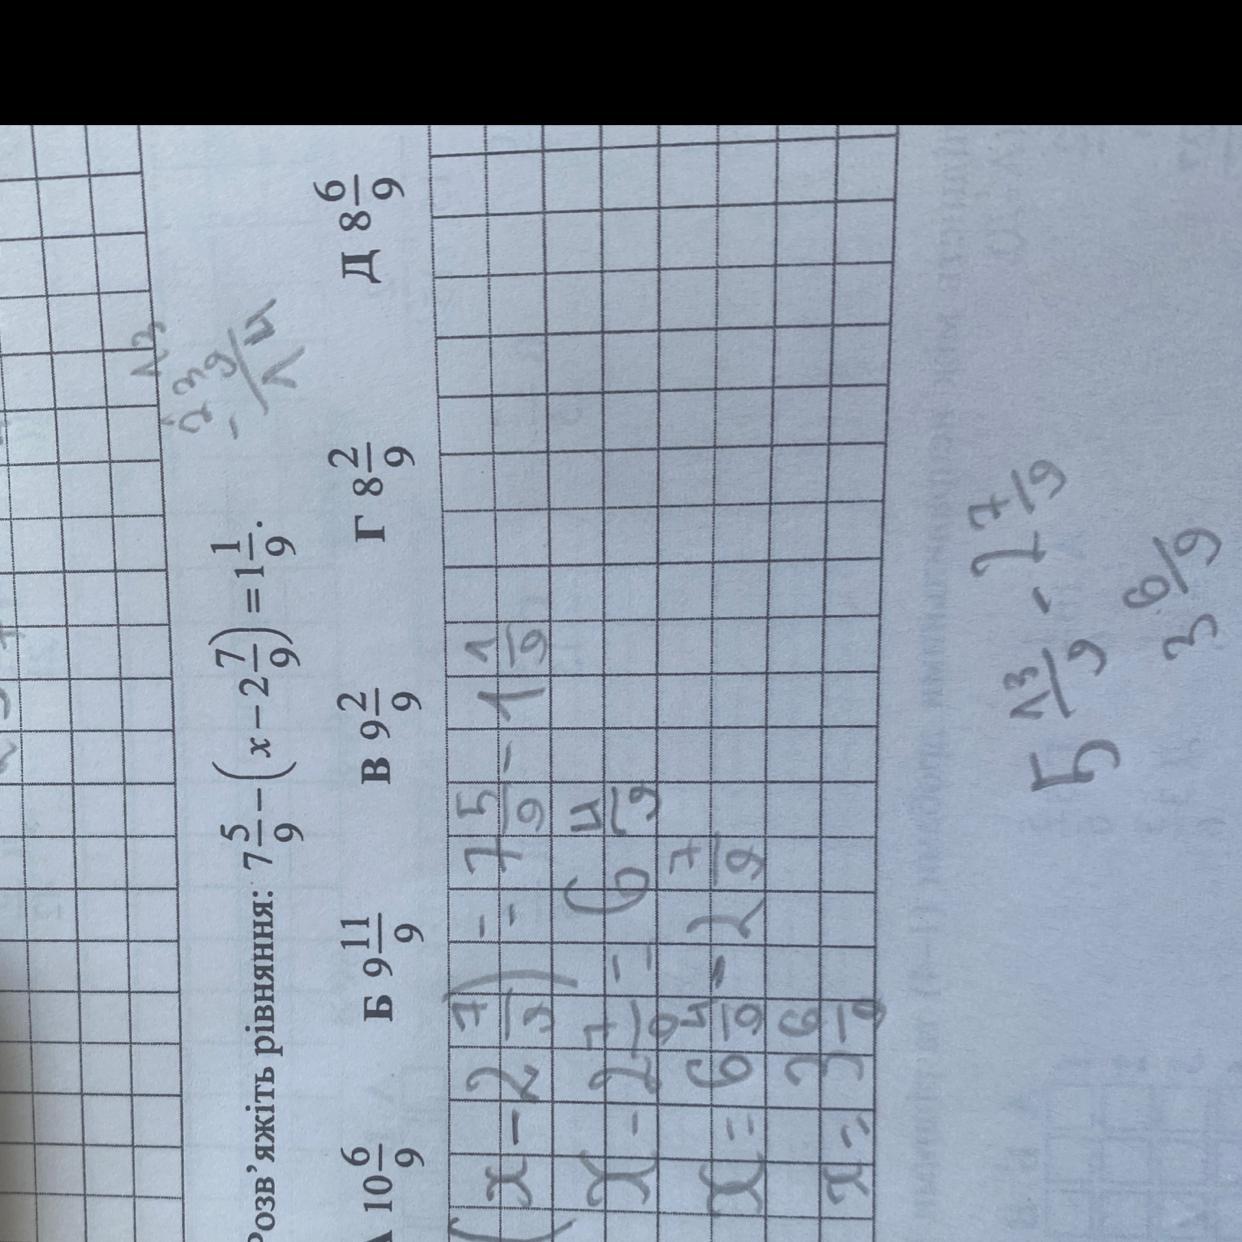 Розв’яжіть рівняння: 7 5/9 − (x − 2 7/9) = 1 1/9.
А 10 6/9 Б 9 11/9 В 9 2/9 Г 8 2/9 Д 8 6/9
(x − 2 7/9) = 7 5/9 − 1 1/9
x − 2 7/9 = 6 4/9
x = 6 4/9 − 2 7/9
x = 3 6/9
5 13/9 - 2 7/9
3 6/9